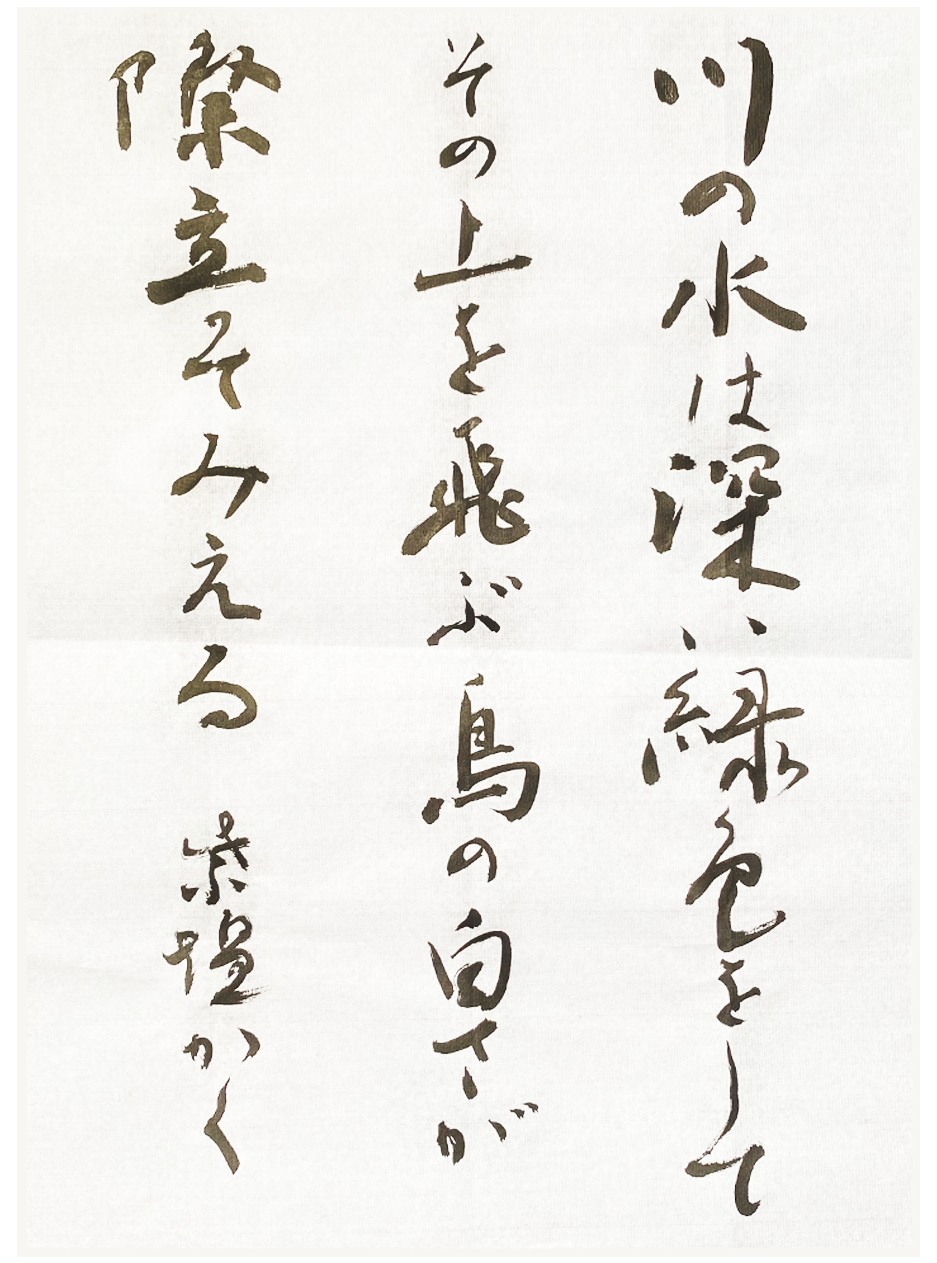 川の水は深い緑色をして
その上を飛ぶ鳥の白さが
際立ってみえる かく